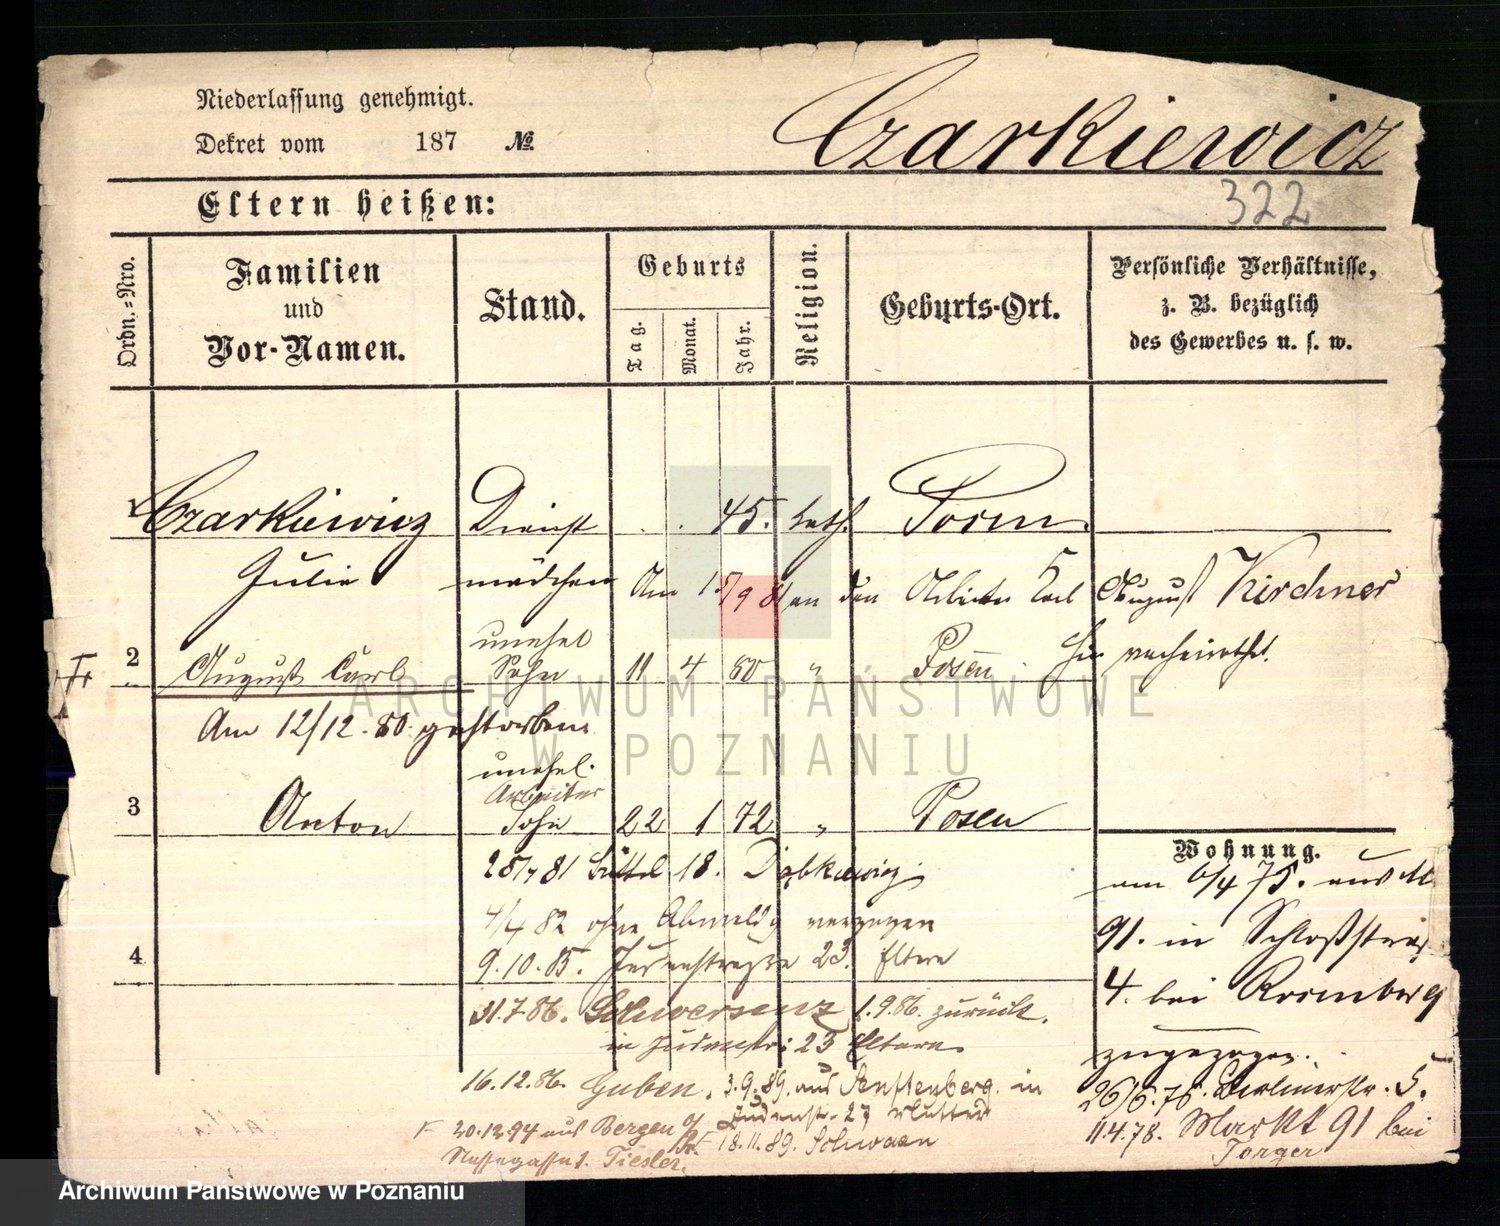 Niederlassung genehmigt.
Dekret vom 187 №
Czarkiewicz
322
Eltern heißen:
Ordn.-Nro.
Familien und Vor-Namen.
Stand.
Geburts
Tag.
Monat.
Jahr.
Religion.
Geburts-Ort.
Persönliche Verhältnisse,
z. B. bezüglich
des Gewerbes u. s. w.
1 Czarkiewicz Dienst . . 45. kath.
Julie mädchen Am 15/9 81 an den Arbeiter Carl August Kirchner
hier verheirathet.
unehel
Fr 2 August Carl Sohn 11 4 80 " Posen
Am 12/12. 80 gestorben
unehel.
Arbeiter
3 Anton Sohn 22 1 72 " Posen
28/7 81 Büttel 18. Dąbkiewicz
4/4 82 ohne Abmeldg verzogen
4
9.10.85. 23. Eltern
31.7.86. Schwersenz 1.9.86. zurück.
in Judenstr: 23 Eltern
16.12.86. Guben. 3.9.89. aus Senftenberg. in
Judenstr. 27 Mutter
F 20.12.94 aus Bergen
18.11.89. Schwaan
Tiesler.
Wohnung.
am 6/4 75. aus M
91. in Schloßstraß
4. bei Romberg
zugezogen.
26/6.75. Berlinerstr. 5.
11.4.78. Markt 91 bei
Torger
ARCHIWUM PAŃSTWOWE
W POZNANIU
Archiwum Państwowe w Poznaniu